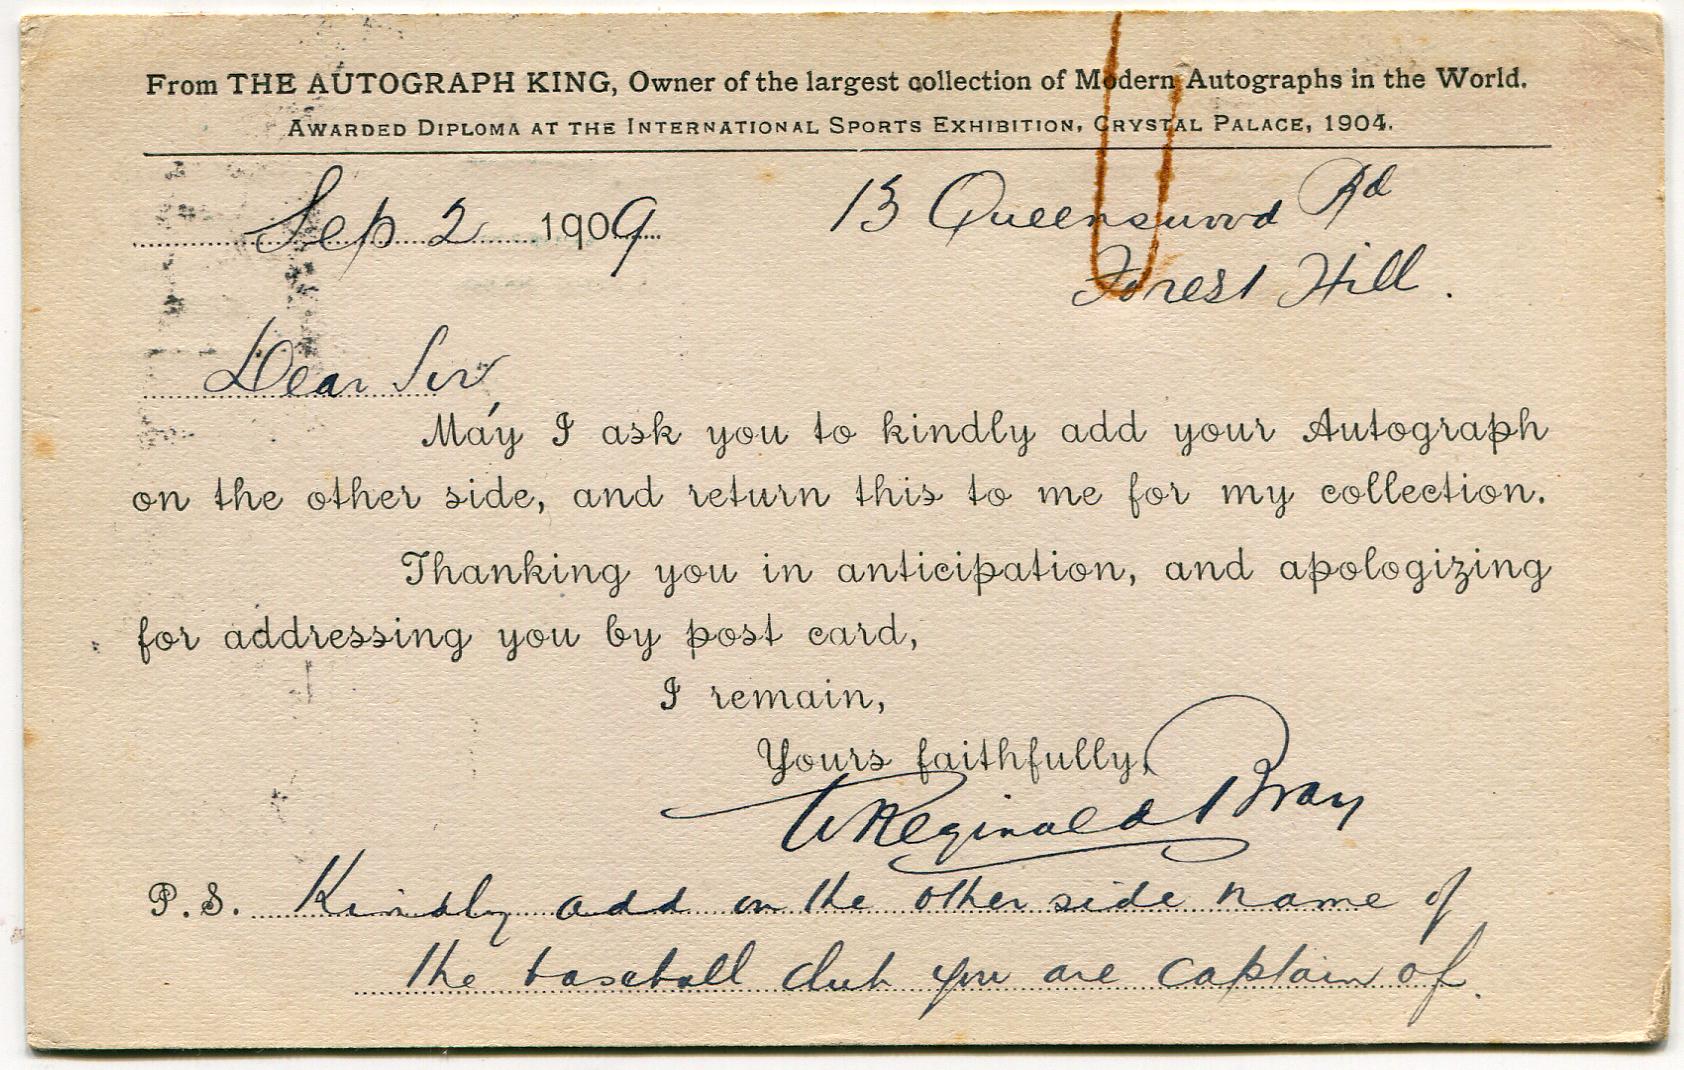 From THE AUTOGRAPH KING, Owner of the largest collection of Modern Autographs in the World.
AWARDED DIPLOMA AT THE INTERNATIONAL SPORTS EXHIBITION, CRYSTAL PALACE, 1904.
Sep 2 1909
13 Queenswood Rd
Forest Hill.
Dear Sir
May I ask you to kindly add your Autograph
on the other side, and return this to me for my collection.
Thanking you in anticipation, and apologizing
for addressing you by post card,
I remain,
Yours faithfully,
W Reginald Bray
P.S. Kindly add on the other side name of
the baseball club you are captain of.